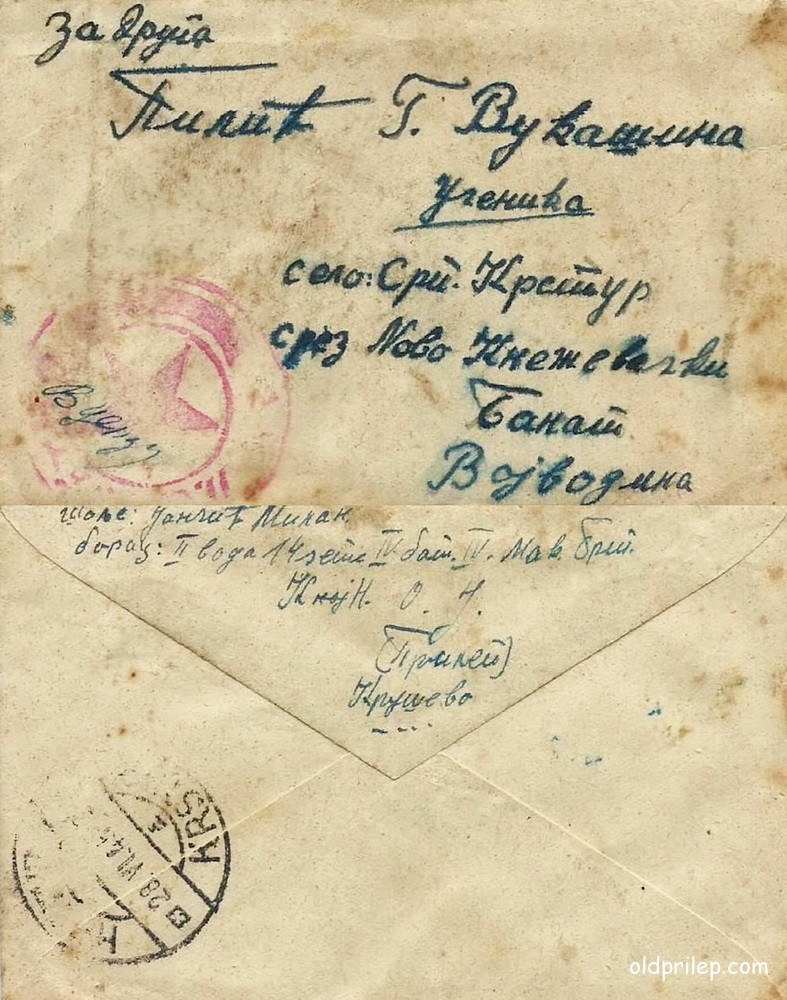 За друга
Пилић Г. Вукашина
Ученика
село: Срп. Крстур
срез Ново Кнежевачки
Банат
Војводина
шаље: Јанчић Милан
борац: II вода 14 чете IV бат. IV. Мак. Бриг.
Књ Н. О. Ј.
(Прилеп)
Крушево
28 VI.45
oldprilep.com